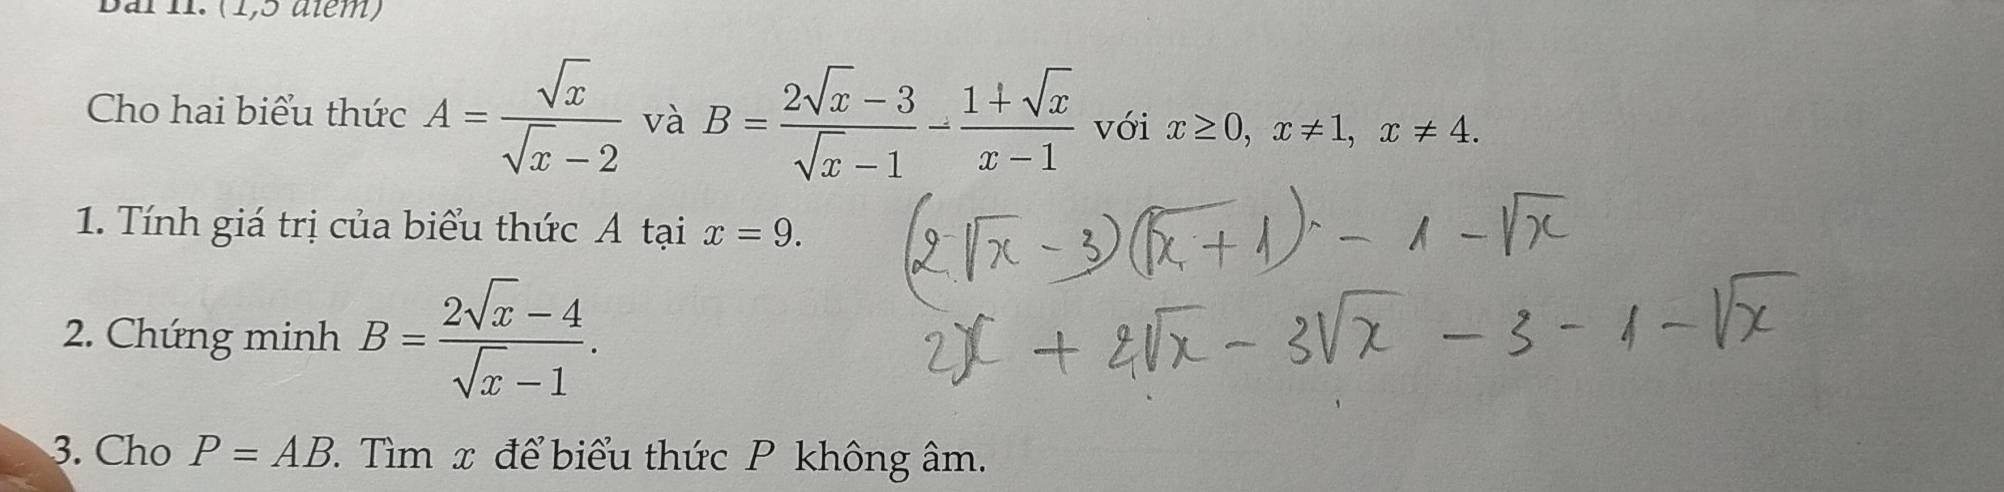 Bài II. (1,5 điểm)
Cho hai biểu thức A = √x / (√x − 2) và B = (2√x − 3) / (√x − 1) − (1 + √x) / (x − 1) với x ≥ 0, x ≠ 1, x ≠ 4.
1. Tính giá trị của biểu thức A tại x = 9.
(2√x − 3)(√x + 1) − 1 − √x
2. Chứng minh B = (2√x − 4) / (√x − 1).
2x + 2√x − 3√x − 3 − 1 − √x
3. Cho P = AB. Tìm x để biểu thức P không âm.